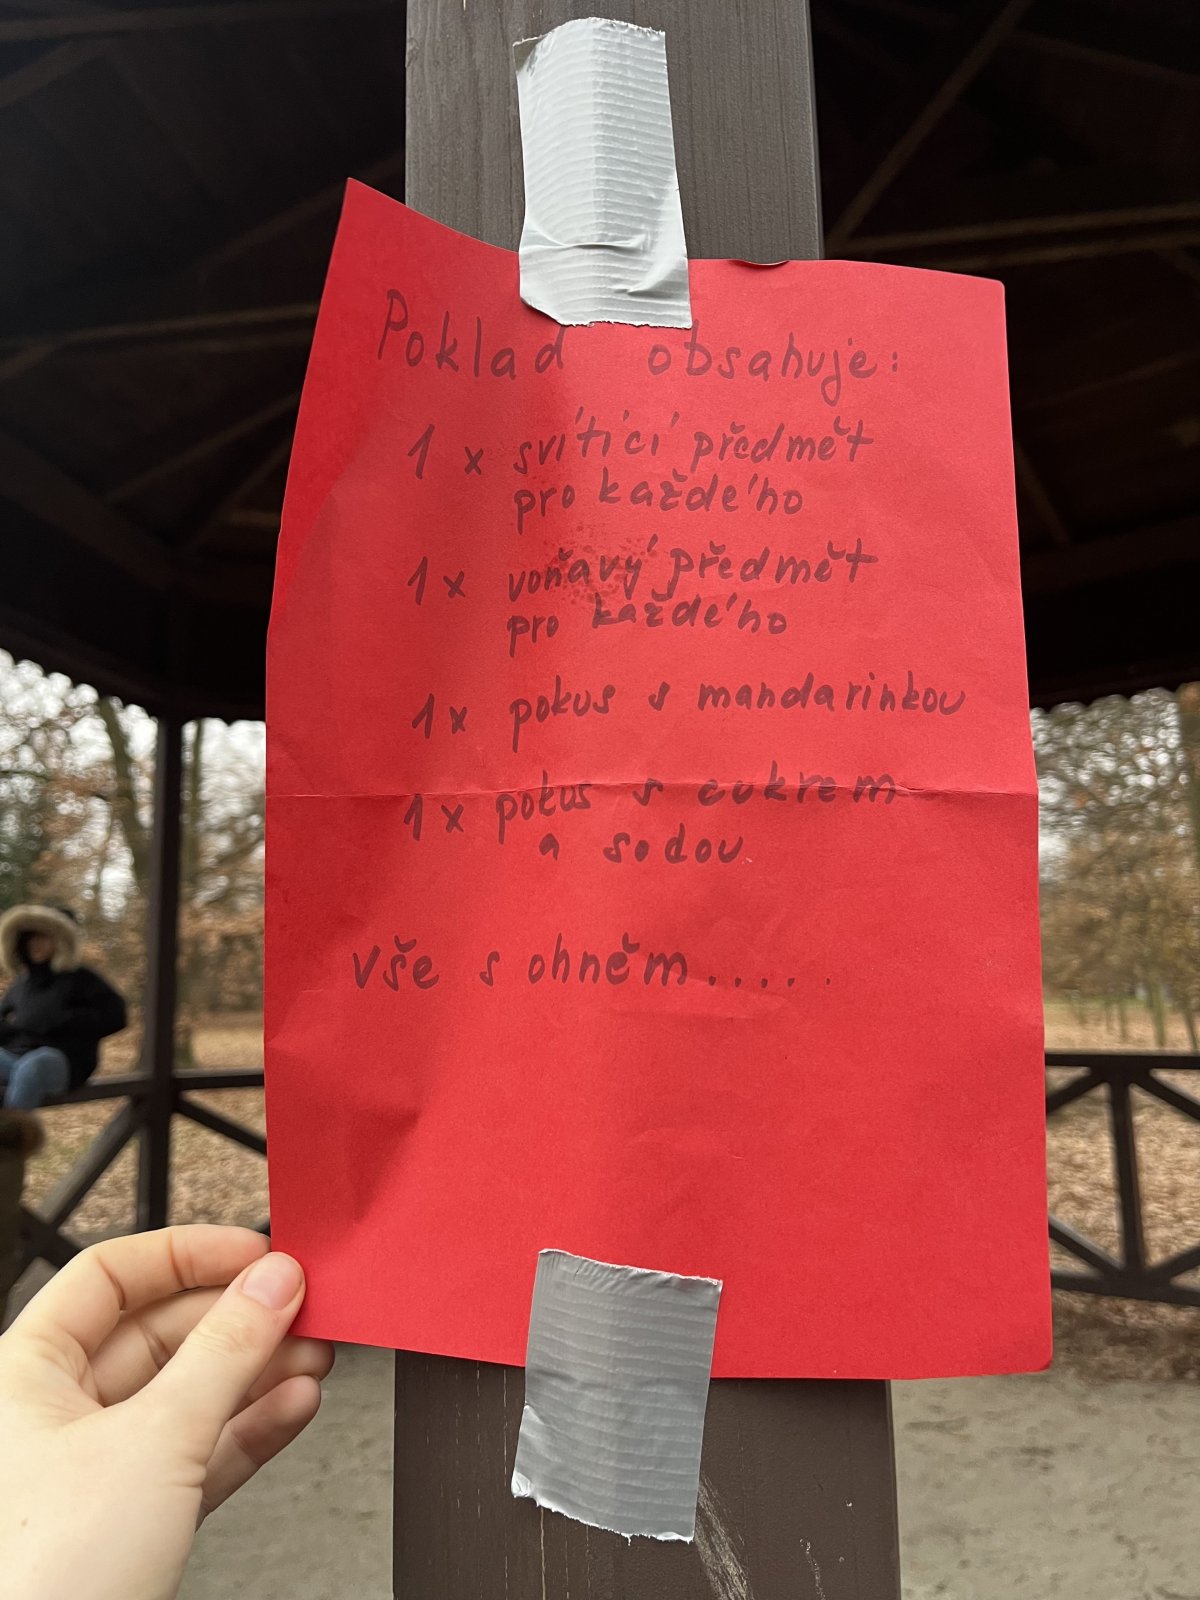 Poklad obsahuje:
1 x svítící předmět
pro každého
1 x voňavý předmět
pro každého
1 x pokus s mandarinkou
1 x pokus s cukrem
a sodou
vše s ohněm.....